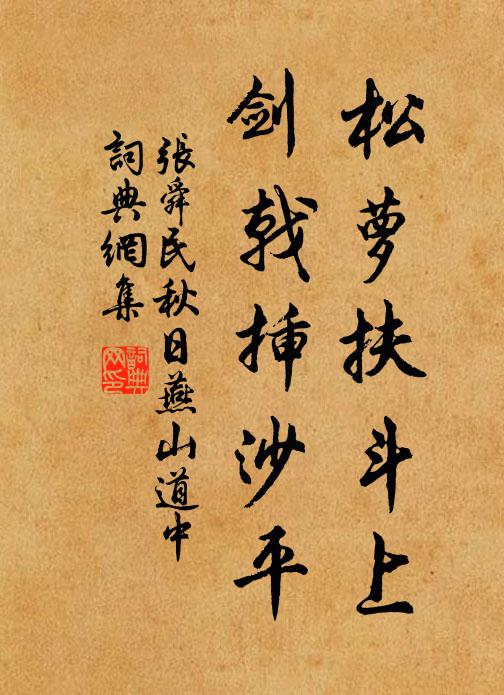 松萝扶斗上
剑戟插沙平
張舜民秋日燕山道中
詞典網集
詞典網印